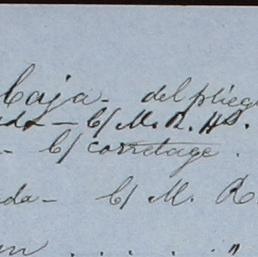 Caja - del plieg
do - C/ M. R. Hs.
- C/ corretage .
da - C/ M. R
. . . . "